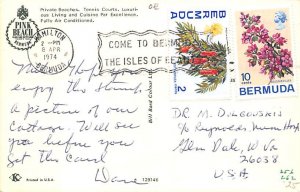 Private Beaches, Tennis Courts, Luxuri-
ous Living and Cuisine Par Excellence.
Fully Air Conditioned.
PINK
BEACH
HAMILTON
2 - PM
8 APR
1974
BERMUDA
COME TO BERMUDA
THE ISLES OF BEAUTY
BERMUDA
2
10
cents
BERMUDA
Hope you
enjoy the
a picture of our
cottage. Will see
you before you
get this card
Dave
DR. M.
c/o Reynolds Mem Hosp
Glen Dale, W. Va
26038
U.S.A.
Printed in U.S.A.
129146